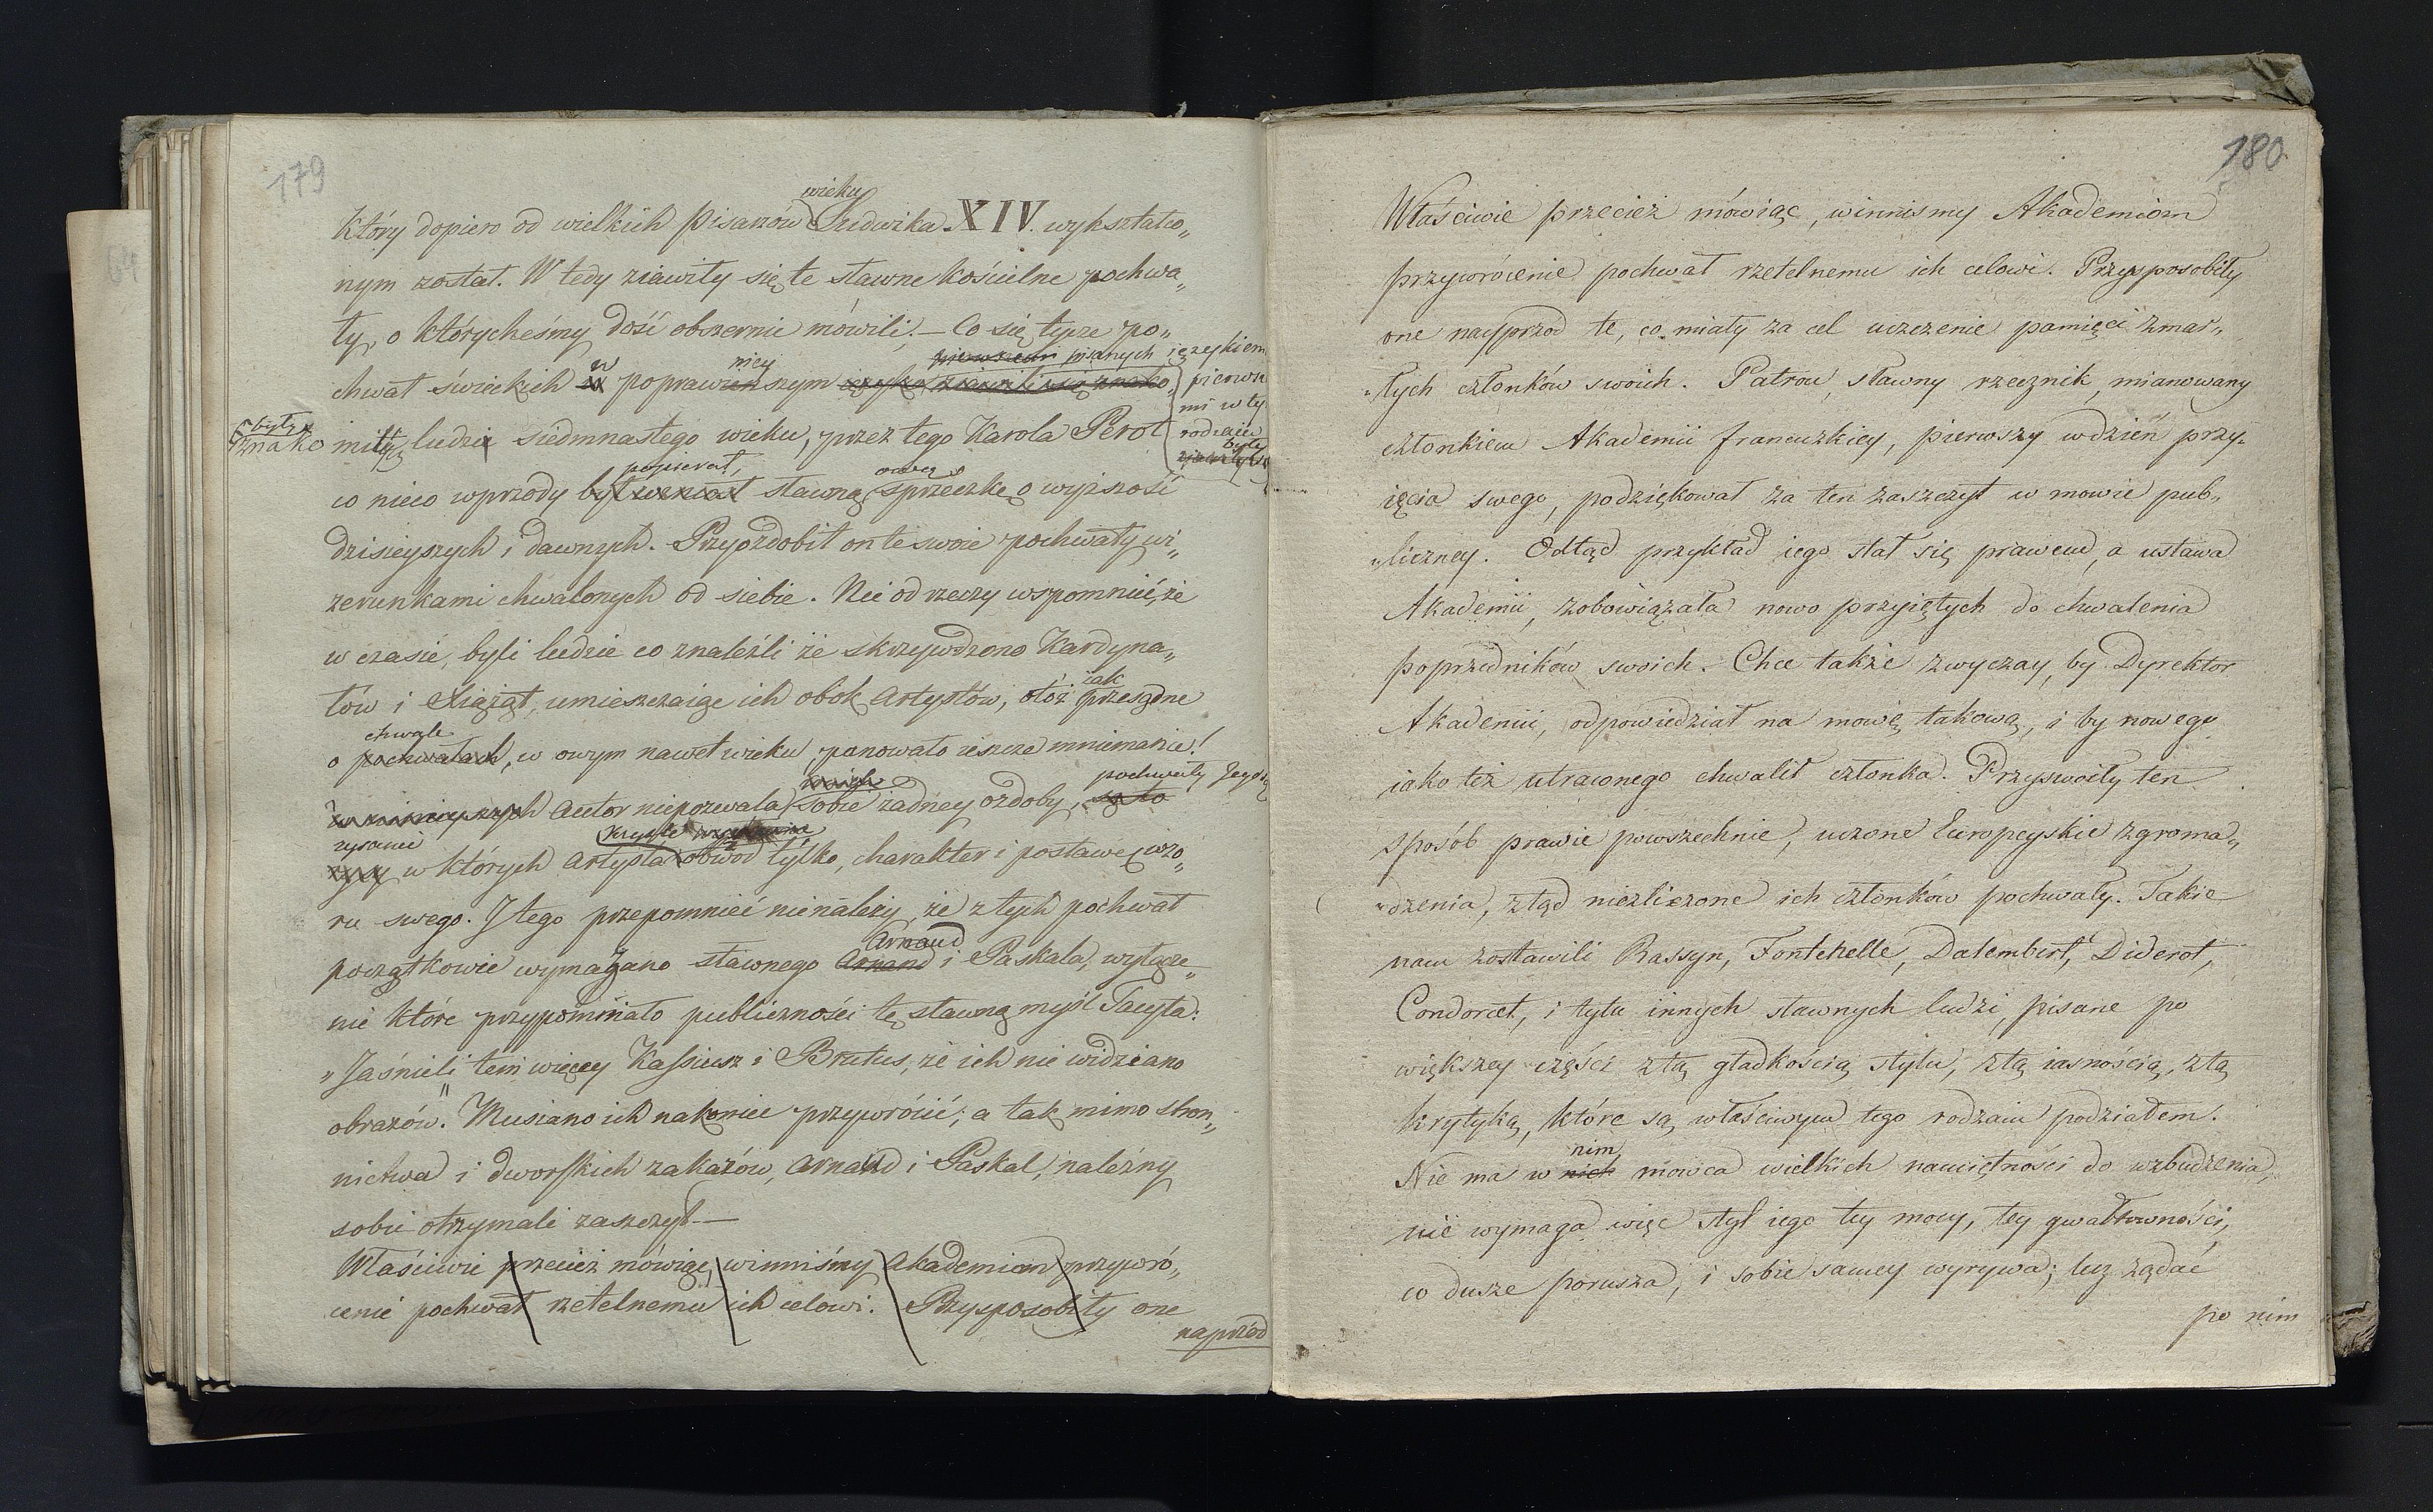 179
wieku
który dopiero od wielkich pisarzów Ludwika XIV. wykształco„
nym został. W tedy ziawiły się te sławne kościelne pochwa„
ły, o którycheśmy dość obszernie mówili. — Co się tycze po„
w niey pisanych ięzykiem
chwał świeckich poprawnym pierwsze
mi w ty
były rodzaiu
znakomitych ludzi siedmnastego wieku, przez tego Karola Perot były
popierał,
co nieco wprzody był wszczął sławną sprzeczkę o wyższość
dzisieyszych i dawnych. Przyozdobił on te swoie pochwały wi„
zerunkami chwalonych od siebie. Nie od rzeczy wspomnieć, że
w czasie, byli ludzie co znaleźli że skrzywdzono Kardyna„
iak
łów i Xiążąt, umieszczaiąc ich obok Artystów, otóż przesądne
chwale
o pochwałach, w owym nawet wieku, panowało ieszcze mniemanie!
pochwały Jego są
Autor niepozwala sobie żadney ozdoby, są to
rysami kryśli
rysy w których Artysta obwód tylko, charakter i postawę wzo„
ru swego. I tego przepomnieć nienależy, że z tych pochwał
Arnaud
początkowie wymazano sławnego Arnand i Paskala, wyłącze„
nie które przypominało publiczności tę sławną myśl Tacyta:
„Jaśnieli tem więcey Kassiusz i Brutus, że ich nie widziano
obrazów." Musiano ich nakoniec przywrócić; a tak mimo stron„
nictwa i dworskich zakazów, Arnaud i Paskal, należny
sobie otrzymali zaszczyt. —
Właściwie przecież mówiąc, winniśmy Akademiom przywró„
cenie pochwał rzetelnemu ich celowi. Przysposobiły one
naprzód
180
Właściwie przecież mówiąc, winnismy Akademiom
przywrócenie pochwał rzetelnemu ich celowi. Przysposobiły
one nayprzod te, co miały za cel uczczenie pamięci zmar„
„łych członków swoich. Patrou, sławny rzecznik, mianowany
członkiem Akademii francuzkiey, pierwszy w dzień przy„
ięcia swego, podziękował za ten zaszczyt w mowie pub„
„liczney. Odtąd przykład iego stał się prawem, a ustawa
Akademii, zobowiązała nowo przyiętych do chwalenia
poprzedników swoich. Chce także zwyczay, by Dyrektor
Akademii, odpowiedział na mowę takową, i by nowego
iako też utraconego chwalił członka. Przyswoiły ten
sposób prawie powszechnie, uczone Europeyskie zgroma„
„dzenia, ztąd niezliczone ich członków pochwały. Takie
nam zostawili Rassyn, Fontenelle, Dalembert, Diderot,
Condorcet, i tylu innych sławnych ludzi, pisane po
większey części z tą gładkością stylu, z tą iasnością, z tą
krytyką, które są właściwym tego rodzaiu podziałem.
nim
Nie ma w nich mówca wielkich namiętności do wzbudzenia,
nie wymaga więc styl iego tey mocy, tey gwałtowności,
co dusze porusza, i sobie samey wyrywa; lecz żądać
po nim